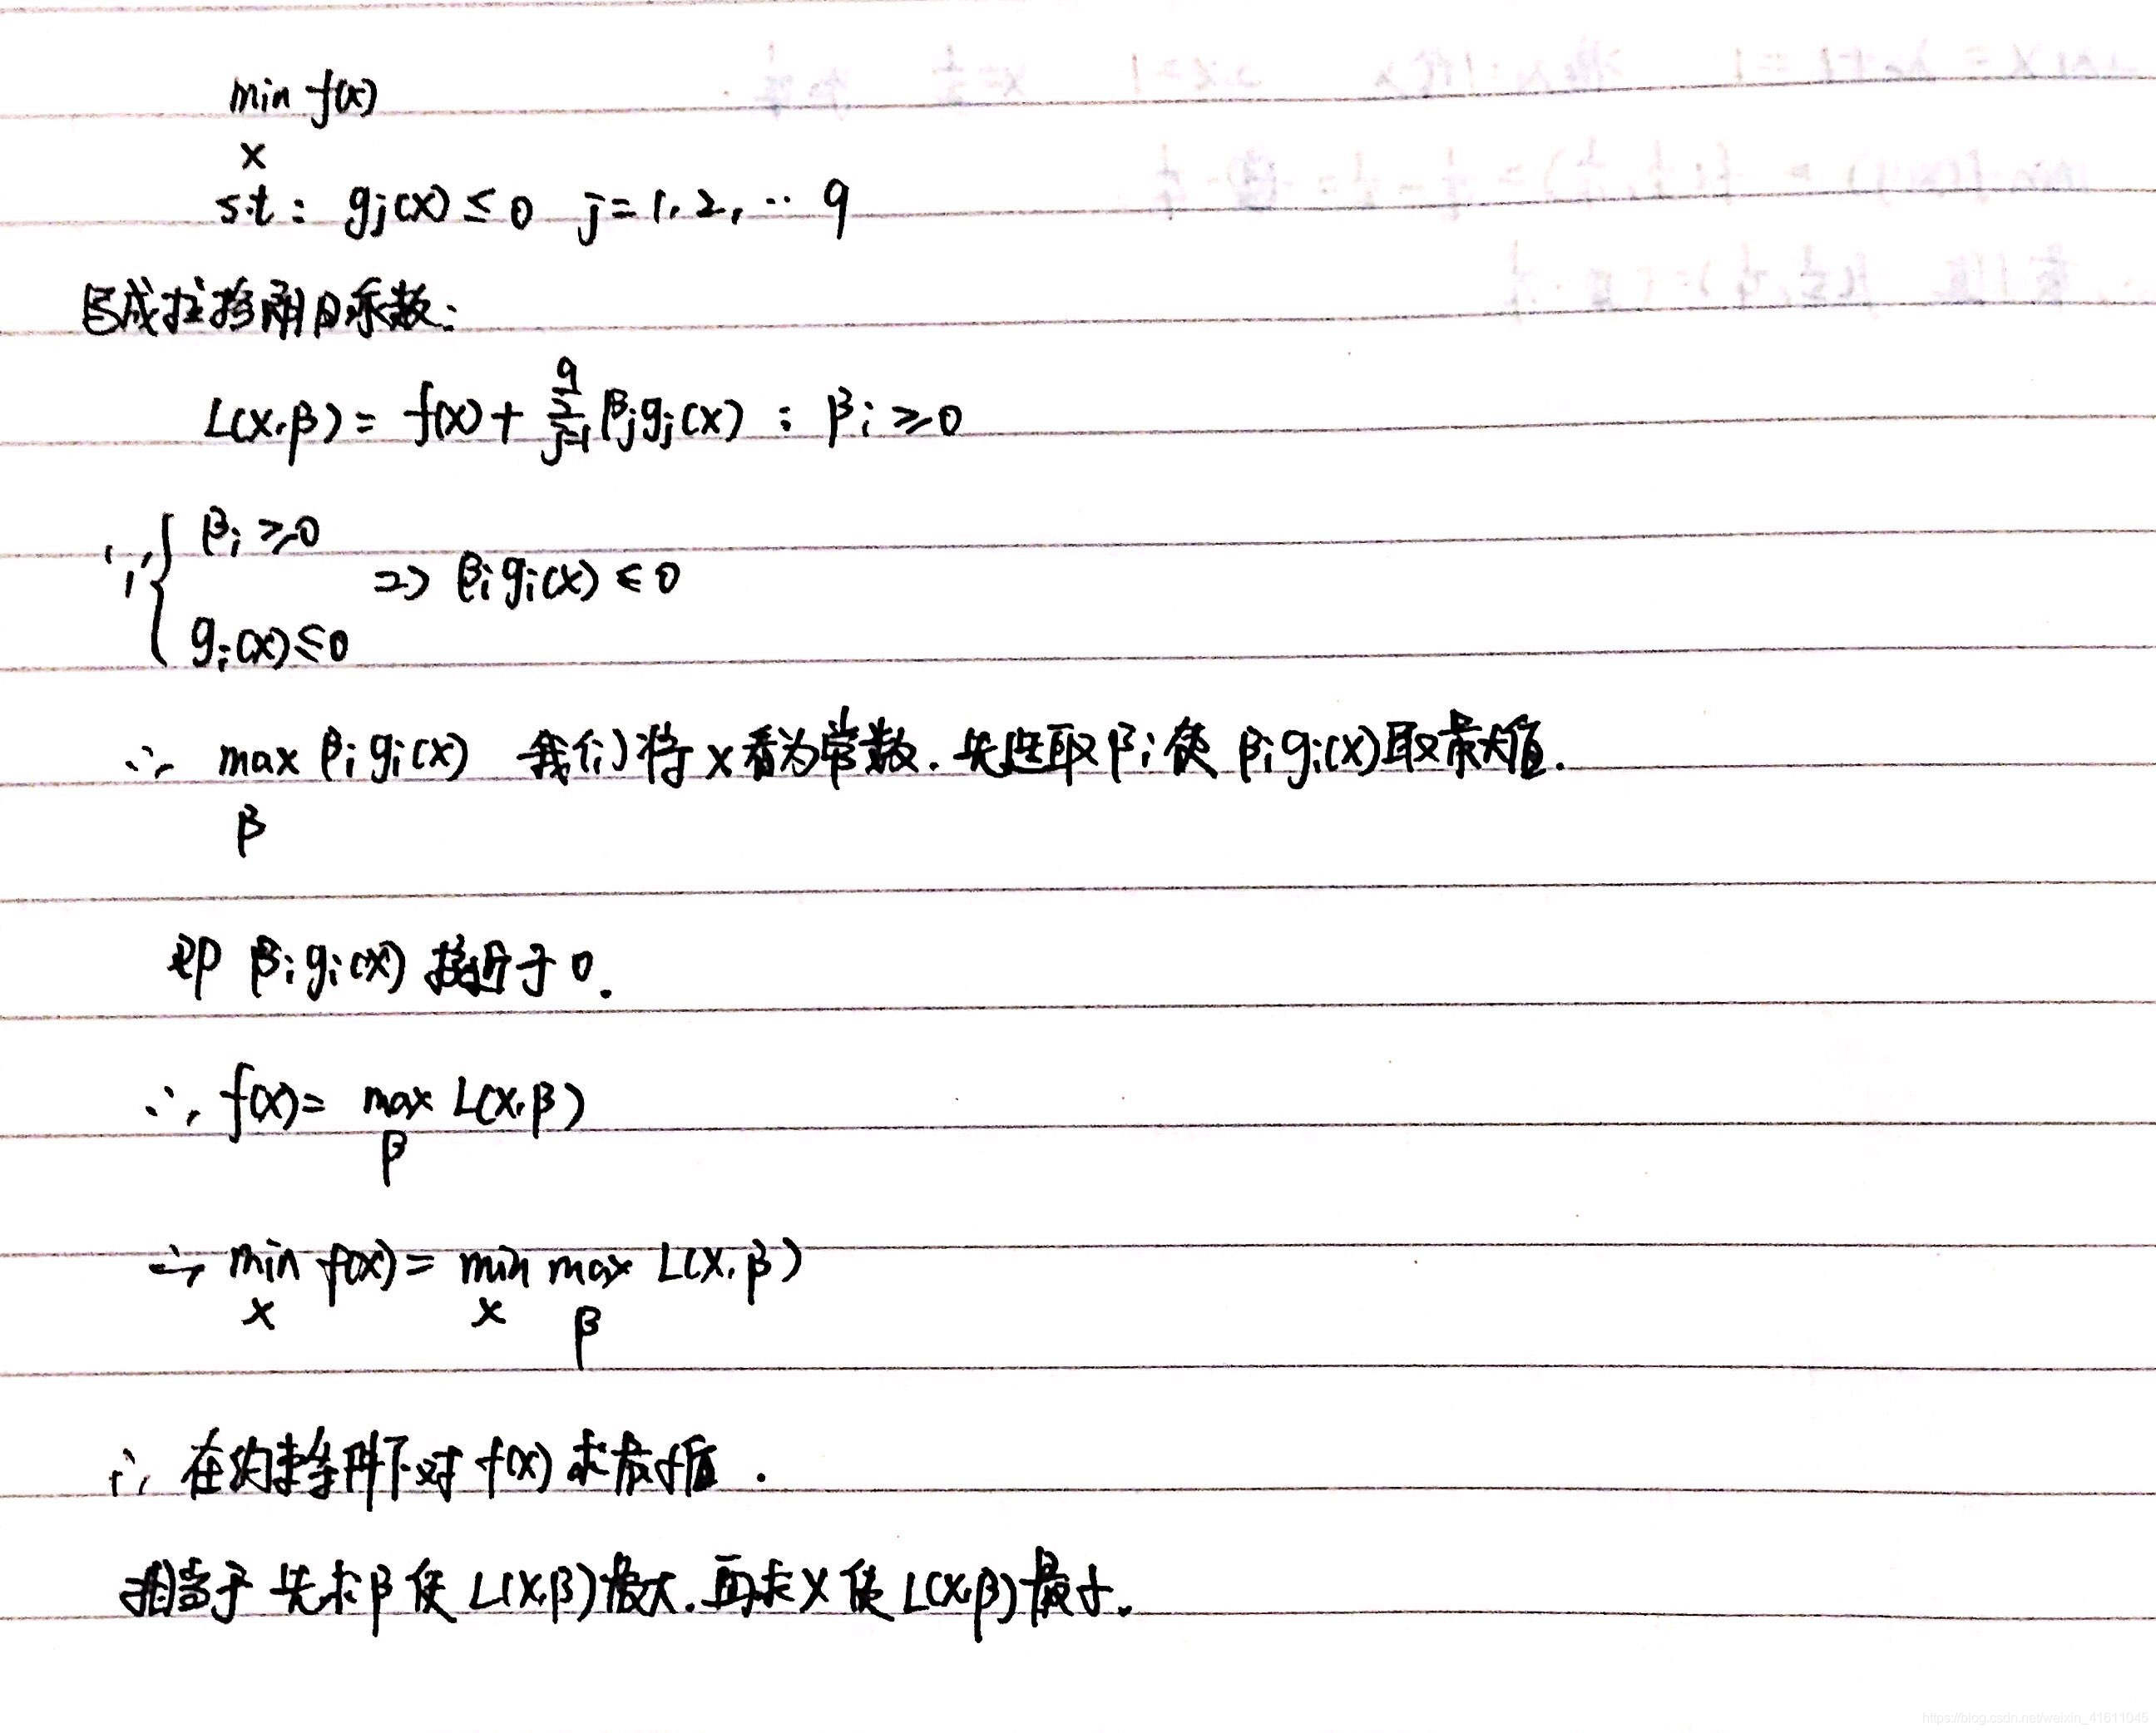 min f(x)
x
s.t: gj(x) ≤ 0 j=1, 2, ··· q
写成拉格朗日乘数:
L(x,β) = f(x) + q Σ j=1 βjgj(x) : βi ≥ 0
∵ { βi ≥ 0
⇒ βigi(x) ≤ 0
gi(x) ≤ 0
∴ max βigi(x) 我们将x看为常数. 先选取βi使 βigi(x)取最大值.
β
即 βigi(x) 接近于 0.
∴ f(x) = max L(x,β)
β
∴ min f(x) = min max L(x,β)
x x β
∴ 在约束条件下对 f(x) 求最小值.
相当于 先求β使 L(x,β)最大. 再求X使 L(x,β)最小.
https://blog.csdn.net/weixin_41611045